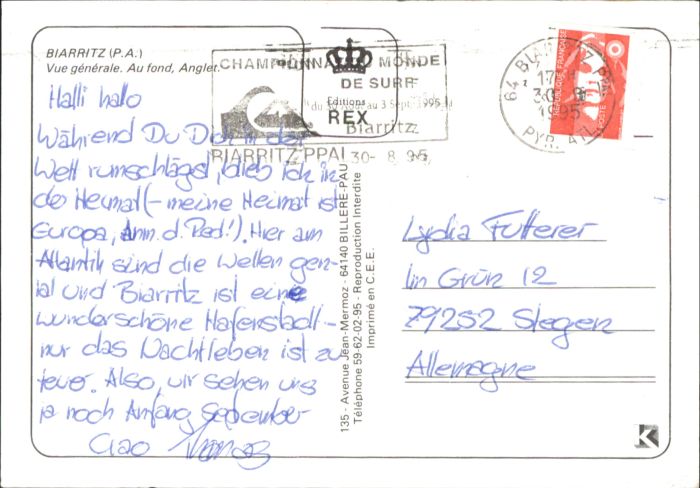 BIARRITZ (P.A.)
Vue générale. Au fond, Anglet.
Halli hallo
Während Du Dich in der
Welt rumschlägst, blieb ich in
der Heimat (- meine Heimat ist
Europa, Anm. d. Red.!). Hier am
Atlantik sind die Wellen gen-
ial und Biarritz ist eine
wunderschöne Hafenstadt -
nur das Nachtleben ist zu
teuer. Also, wir sehen uns
ja noch Anfang September
Ciao Thomas
CHAMPIONNAT MONDE
DE SURF
3 Sept 1995
Biarritz
BIARRITZ PPAL 30-8 95
Editions
REX
135 - Avenue Jean-Mermoz - 64140 BILLERE-PAU
Téléphone 59-62-02-95 - Reproduction Interdite
Imprimé en C.E.E.
64 BIARRITZ PPAL
17H
30 8
1995
PYR. ATL.
REPUBLIQUE FRANÇAISE
LA POSTE
Lydia Futterer
Im Grün 12
79252 Stegen
Allemagne
K